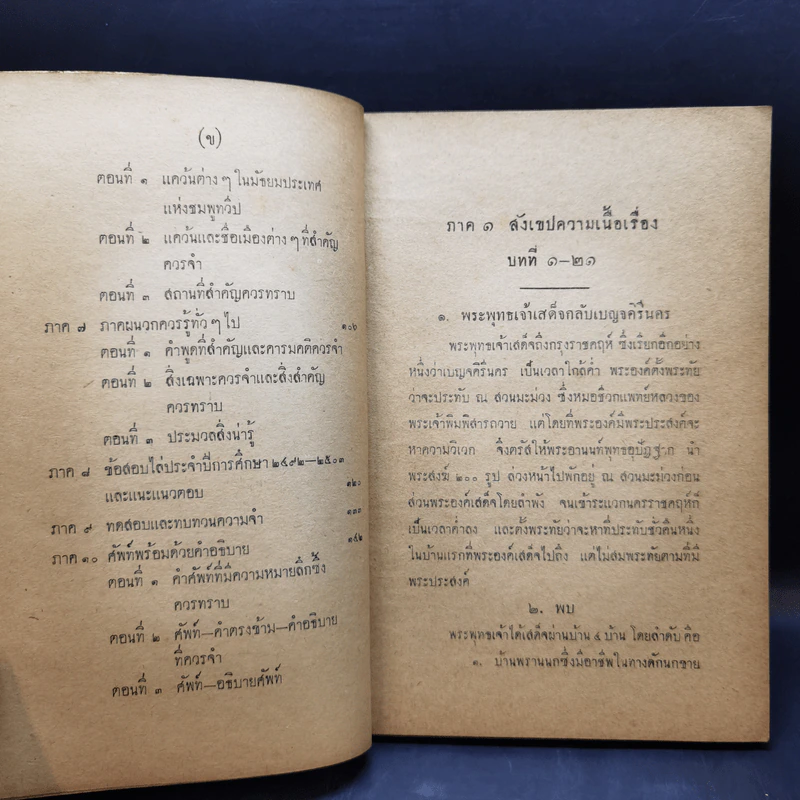 (ข)
ตอนที่ ๑ แคว้นต่าง ๆ ในมัธยมประเทศ
แห่งชมพูทวีป
ตอนที่ ๒ แคว้นและชื่อเมืองต่าง ๆ ที่สำคัญ
ควรจำ
ตอนที่ ๓ สถานที่สำคัญควรทราบ
ภาค ๗ ภาคผนวกควรรู้ทั่ว ๆ ไป ๑๐๖
ตอนที่ ๑ คำพูดที่สำคัญและคารมคติควรจำ
ตอนที่ ๒ สิ่งเฉพาะควรจำและสิ่งสำคัญ
ควรทราบ
ตอนที่ ๓ ประมวลสิ่งน่ารู้
ภาค ๘ ข้อสอบไล่ประจำปีการศึกษา ๒๔๙๒—๒๕๐๓
และแนะแนวตอบ ๑๒๐
ภาค ๙ ทดสอบและทบทวนความจำ ๑๓๓
ภาค ๑๐ ศัพท์พร้อมด้วยคำอธิบาย ๑๔๒
ตอนที่ ๑ คำศัพท์ที่มีความหมายลึกซึ้ง
ควรทราบ
ตอนที่ ๒ ศัพท์—คำตรงข้าม—คำอธิบาย
ที่ควรจำ
ตอนที่ ๓ ศัพท์—อธิบายศัพท์
ภาค ๑ สังเขปความเนื้อเรื่อง
บทที่ ๑—๒๑
๑. พระพุทธเจ้าเสด็จกลับเบญจคิรีนคร
พระพุทธเจ้าเสด็จถึงกรุงราชคฤห์ ซึ่งเรียกอีกอย่าง
หนึ่งว่าเบญจคิรีนคร เป็นเวลาใกล้ค่ำ พระองค์ตั้งพระทัย
ว่าจะประทับ ณ สวนมะม่วง ซึ่งหมอชีวกแพทย์หลวงของ
พระเจ้าพิมพิสารถวาย แต่โดยที่พระองค์มีพระประสงค์จะ
หาความวิเวก จึงตรัสให้พระอานนท์พุทธอุปัฏฐาก นำ
พระสงฆ์ ๒๐๐ รูป ล่วงหน้าไปพักอยู่ ณ สวนมะม่วงก่อน
ส่วนพระองค์เสด็จโดยลำพัง จนเข้าระแวกนครราชคฤห์ก็
เป็นเวลาค่ำลง และตั้งพระทัยว่าจะหาที่ประทับชั่วคืนหนึ่ง
ในบ้านแรกที่พระองค์เสด็จไปถึง แต่ไม่สมพระทัยตามที่มี
พระประสงค์
๒. พบ
พระพุทธเจ้าได้เสด็จผ่านบ้าน ๔ บ้าน โดยลำดับ คือ
๑. บ้านพรานนกซึ่งมีอาชีพในทางดักนกขาย